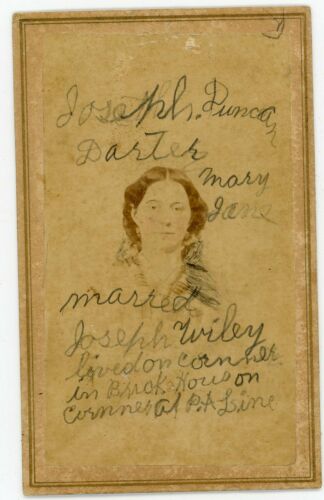 Joseph. Duncan
Darter
Mary
Jane
marred
Joseph Wiley
lived on cornner
in Brick House on
cornner at P.A Line